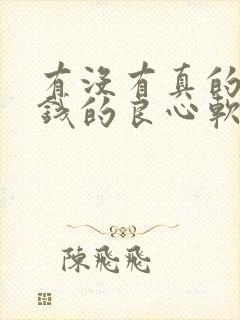 有沒有真的
錢的良心軟
陳飛飛